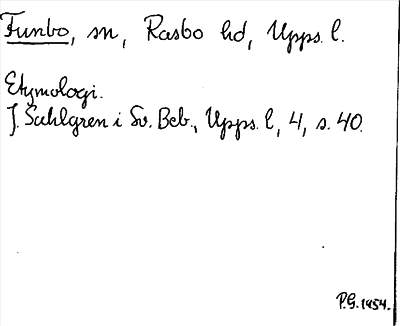 Funbo, sn, Rasbo hd, Upps. l.
Etymologi.
J. Sahlgren i Sv. Beb., Upps. l, 4, s. 40.
P.G. 1954.